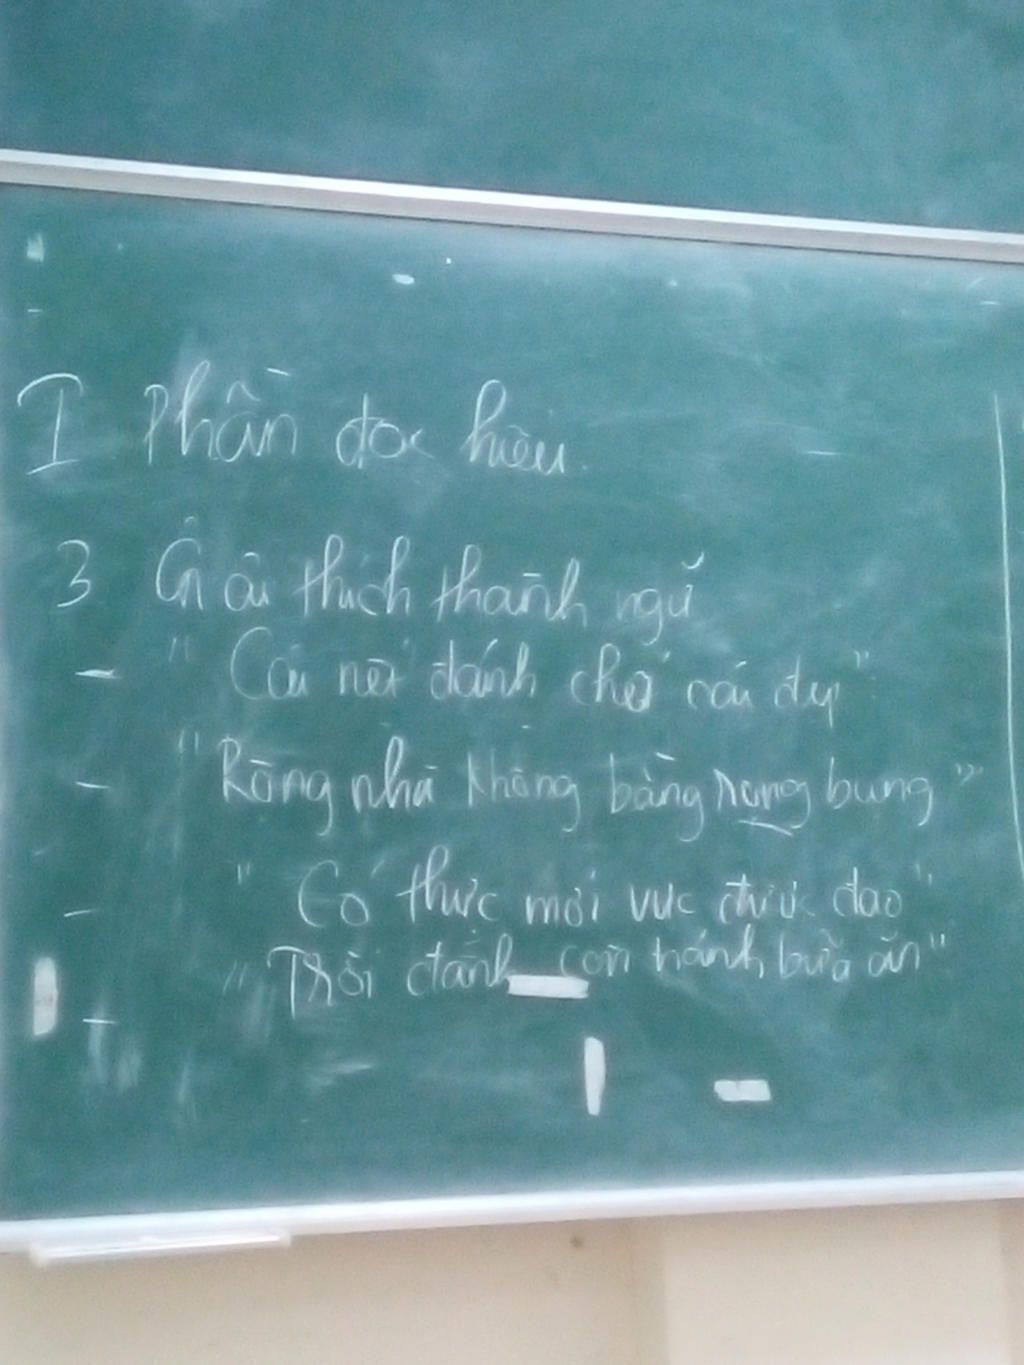 I Phần đọc hiểu.
3 Giải thích thành ngữ
- "Cái nết đánh chết cái đẹp"
- "Rộng nhà không bằng rộng bụng"
- "Có thực mới vực được đạo"
- "Trời đánh còn tránh bữa ăn"